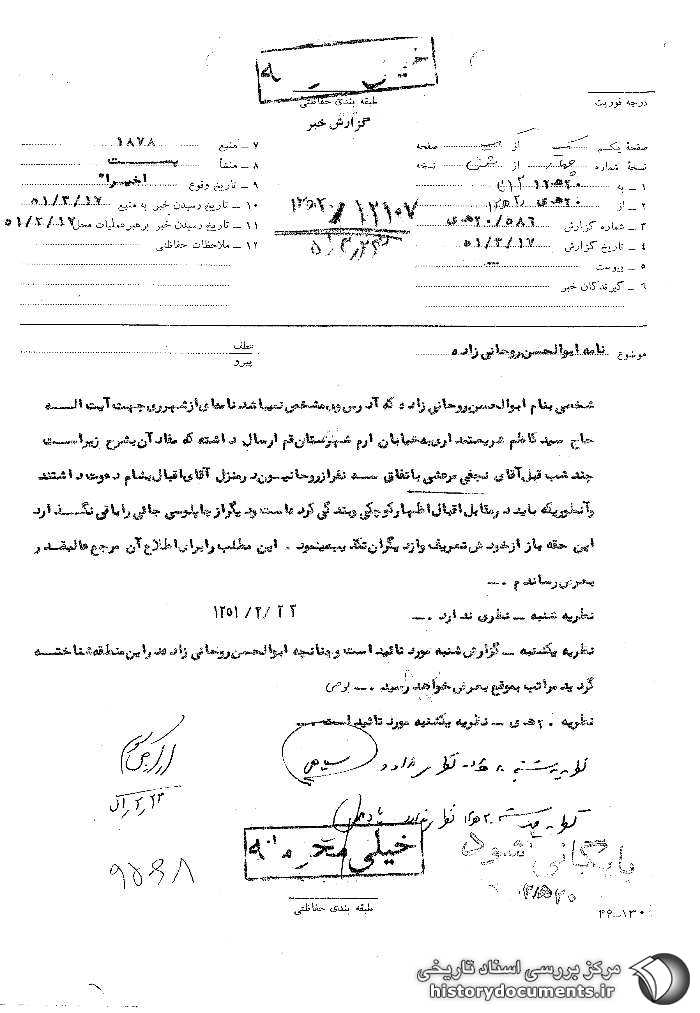 خیلی محرمانه
طبقه بندی حفاظتی
گزارش خبر
درجه فوریت
صفحه یکم یک از یک صفحه
نسخه شماره چهار از شش نسخه
۱ – به
۲ – از ۲۰ هـ ی
۳ – شماره گزارش ۲۰/۵۸۶ هـ ی
۴ – تاریخ گزارش ۵۱/۳/۱۷
۵ – پیوست —
۶ – گیرندگان خبر
۱۲۱۰۷
۷ – منبع ۱۸۷۸
۸ – منشأ پست
۹ – تاریخ وقوع اخیرا"
۱۰ – تاریخ رسیدن خبر به منبع ۵۱/۳/۱۷
۱۱ – تاریخ رسیدن خبر برهبر عملیات محل ۵۱/۳/۱۷
۱۲ – ملاحظات حفاظتی
موضوع نامه ابوالحسن روحانی زاده
عطف
پیرو
شخصی بنام ابوالحسن روحانی زاده که آدرس وی مشخص نمیباشد نامه‌ای از شهرری جهت آیت اله
حاج سید کاظم شریعتمداری به خیابان ارم شهرستان قم ارسال داشته که مفاد آن بشرح زیر است
چند شب قبل آقای نجفی مرعشی با تفاق سه نفر از روحانیون در منزل آقای اقبال بشام دعوت داشتند
و آنطوریکه باید در مقابل اقبال اظهار کوچکی و بندگی کرده است و دیگر از چاپلوسی جائی را باقی نگذارد
این حقه باز از خودش تعریف و از دیگران تکذیب مینمود . این مطلب را برای اطلاع آن مرجع عالیقدر
بعرض رساندم .—
نظریه شنبه – نظری ندارد .— ۱۳۵۱/۳/۲۲
نظریه یکشنبه – گزارش شنبه مورد تائید است و چنانچه ابوالحسن روحانی زاده در این منطقه شناخته
گردید مراتب بموقع بعرض خواهد رسید .—
نظریه ۲۰ هـ ی – نظریه یکشنبه مورد تائید است .—
خیلی محرمانه
طبقه بندی حفاظتی
بایگانی شود
۴۶-۱۳۰
مرکز بررسی اسناد تاریخی
historydocuments.ir